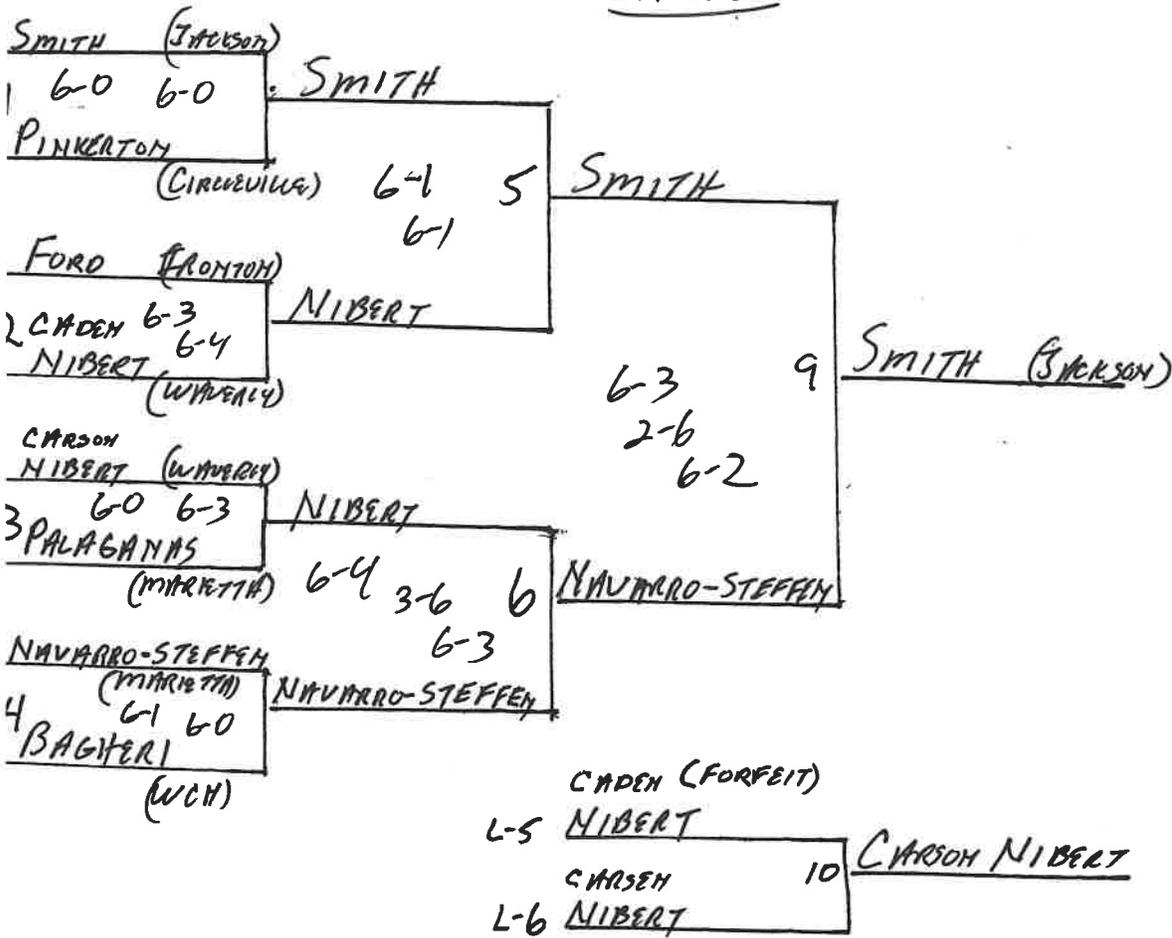 SMITH (JACKSON)
1 6-0 6-0
PINKERTON
(CIRCLEVILLE)
SMITH
6-1 5
6-1
FORD (IRONTON)
2 CADEN 6-3
NIBERT 6-4
(WAVERLY)
NIBERT
SMITH
CARSON
NIBERT (WAVERLY)
6-0 6-3
3 PALAGANAS
(MARIETTA)
NIBERT
6-4 3-6 6
6-3
NAVARRO-STEFFEN
(MARIETTA)
4 6-1 6-0
BAGHERI
(WCH)
NAVARRO-STEFFEN
6-3 9
2-6
6-2
NAVARRO-STEFFEN
SMITH (JACKSON)
CADEN (FORFEIT)
L-5 NIBERT
CARSEN 10
L-6 NIBERT
CARSON NIBERT